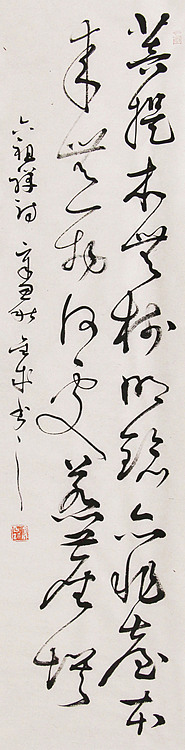 菩提本無樹明鏡亦非臺本
來無一物何處惹塵埃
六祖禪詩 辛 秋 書